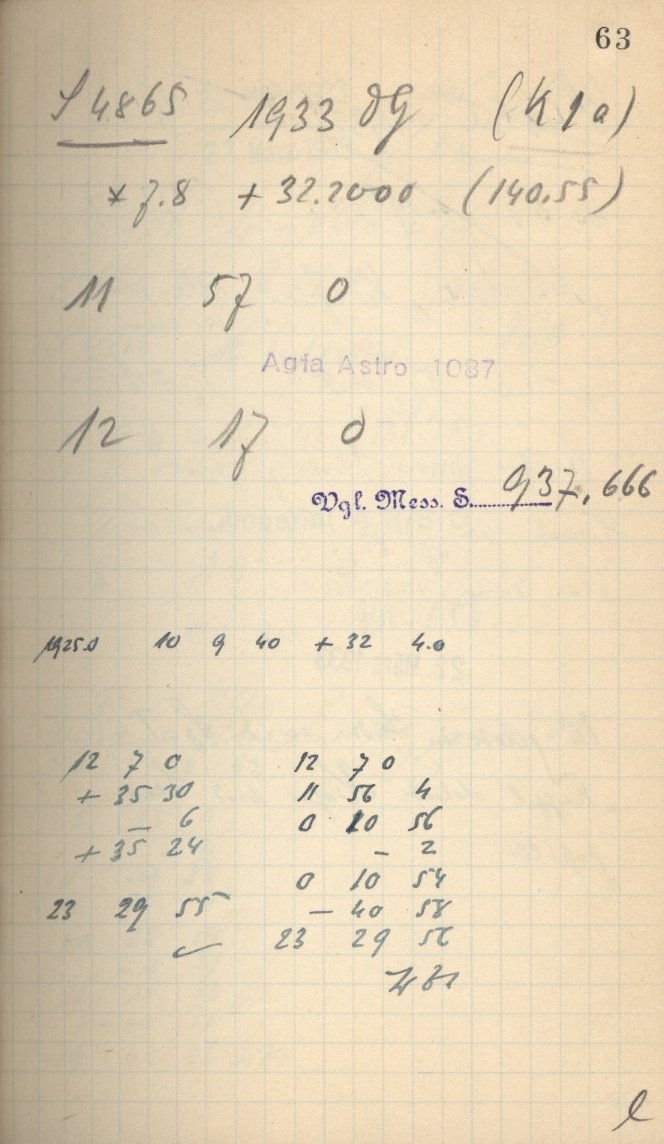 63
S 4865 1933 DG (K 1 a)
* 7.8 + 32.2000 (140.55)
11 57 0
Agfa Astro 1087
12 17 0
Vgl. Mess. S. 937, 666
1925.0 10 9 40 + 32 4.0
12 7 0 12 7 0
+ 35 30 11 56 4
— 6 0 10 56
+ 35 24 - 2
0 10 54
23 29 55 — 40 58
✓ 23 29 56
l